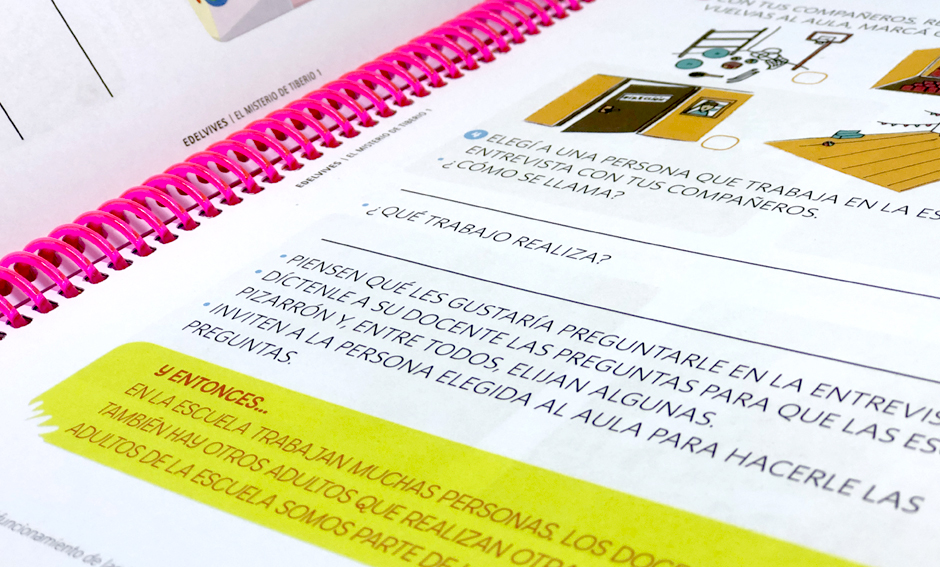 EDELVIVES | EL MISTERIO DE TIBERIO 1
EDELVIVES | EL MISTERIO DE TIBERIO 1
CON TUS COMPAÑEROS.
VUELVAS AL AULA, MARCÁ
ELEGÍ A UNA PERSONA QUE TRABAJA EN LA
ENTREVISTA CON TUS COMPAÑEROS.
• ¿CÓMO SE LLAMA?
• ¿QUÉ TRABAJO REALIZA?
• PIENSEN QUÉ LES GUSTARÍA PREGUNTARLE EN LA
DÍCTENLE A SU DOCENTE LAS PREGUNTAS PARA QUE LAS
PIZARRÓN Y, ENTRE TODOS, ELIJAN ALGUNAS.
• INVITEN A LA PERSONA ELEGIDA AL AULA PARA HACERLE LAS
PREGUNTAS.
Y ENTONCES...
EN LA ESCUELA TRABAJAN MUCHAS PERSONAS. LOS
TAMBIÉN HAY OTROS ADULTOS QUE REALIZAN
ADULTOS DE LA ESCUELA SOMOS PARTE DE
funcionamiento de